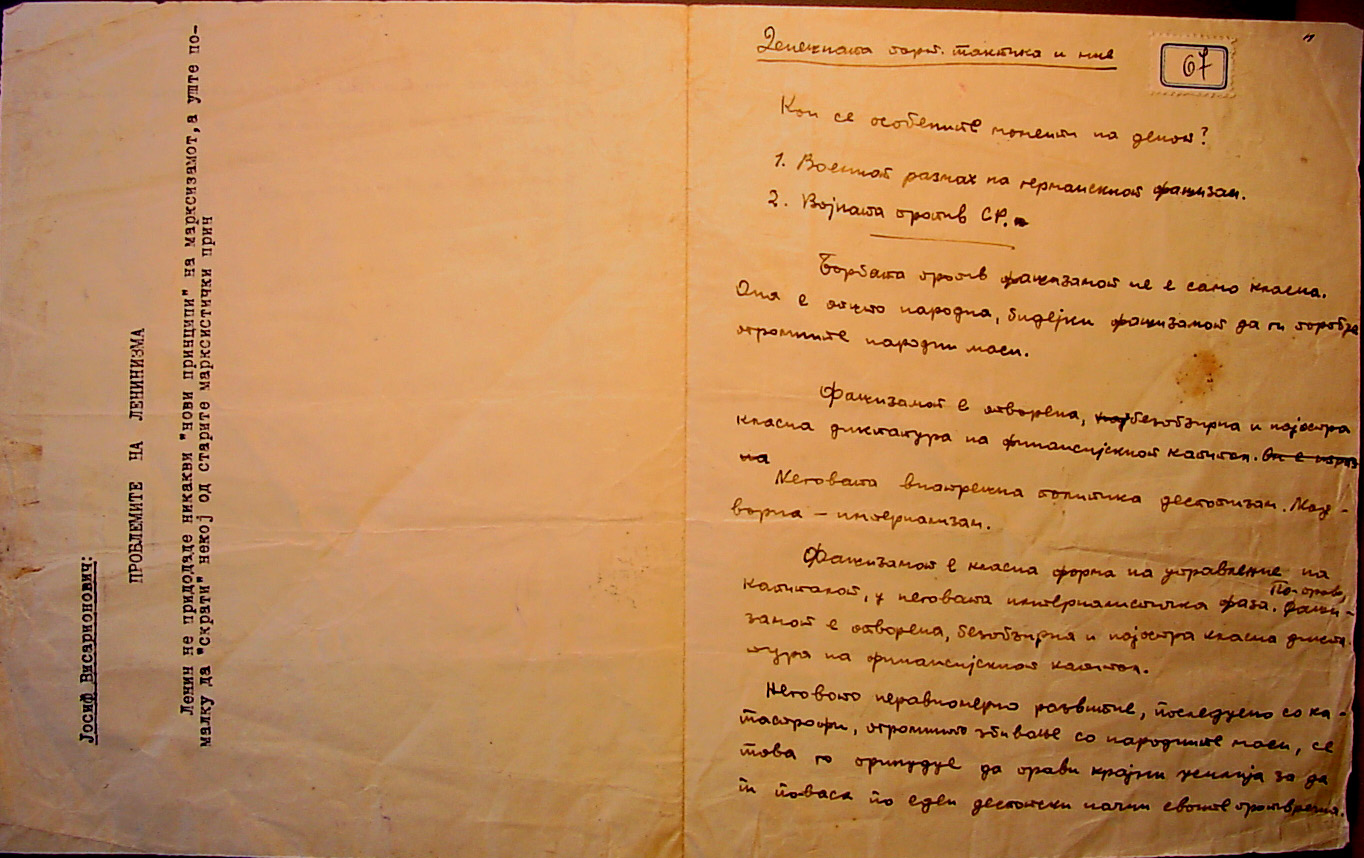 Јосиф Висарионович:
ПРОБЛЕМИТЕ НА ЛЕНИНИЗМА
Ленин не придодаде никакви "нови принципи" на марксизамот, а уште по-
малку да "скрати" некој од старите марксистички прин
Денешната тактика и ние
67
Кои се особените моменти на денот?
1. Военнот размах на германскиот фашизам.
2. Војната против СР.
Борбата против фашизамот не е само класна.
Она е општо народна, бидејки фашизамот да ги поробва
огромните народни маси.
Фашизамот е отворена, безобѕирна и најостра
класна диктатура на финансијскиот капитал.
на
Неговата внатрешна политика деспотизам. Над-
ворна — империализам.
Фашизамот е класна форма на управление на
капиталот, у неговата империалистичка фаза. По-право, фаши-
замот е отворена, безобѕирна и најостра класна дикта
тура на финансијскиот капитал.
Неговото неравномерно развитие, последуено со ка-
тастрофи, огромното збивање со народните маси, се
това го принудуе да прави крајни усилија за да
ги по еден деспотски начин своите противречия.